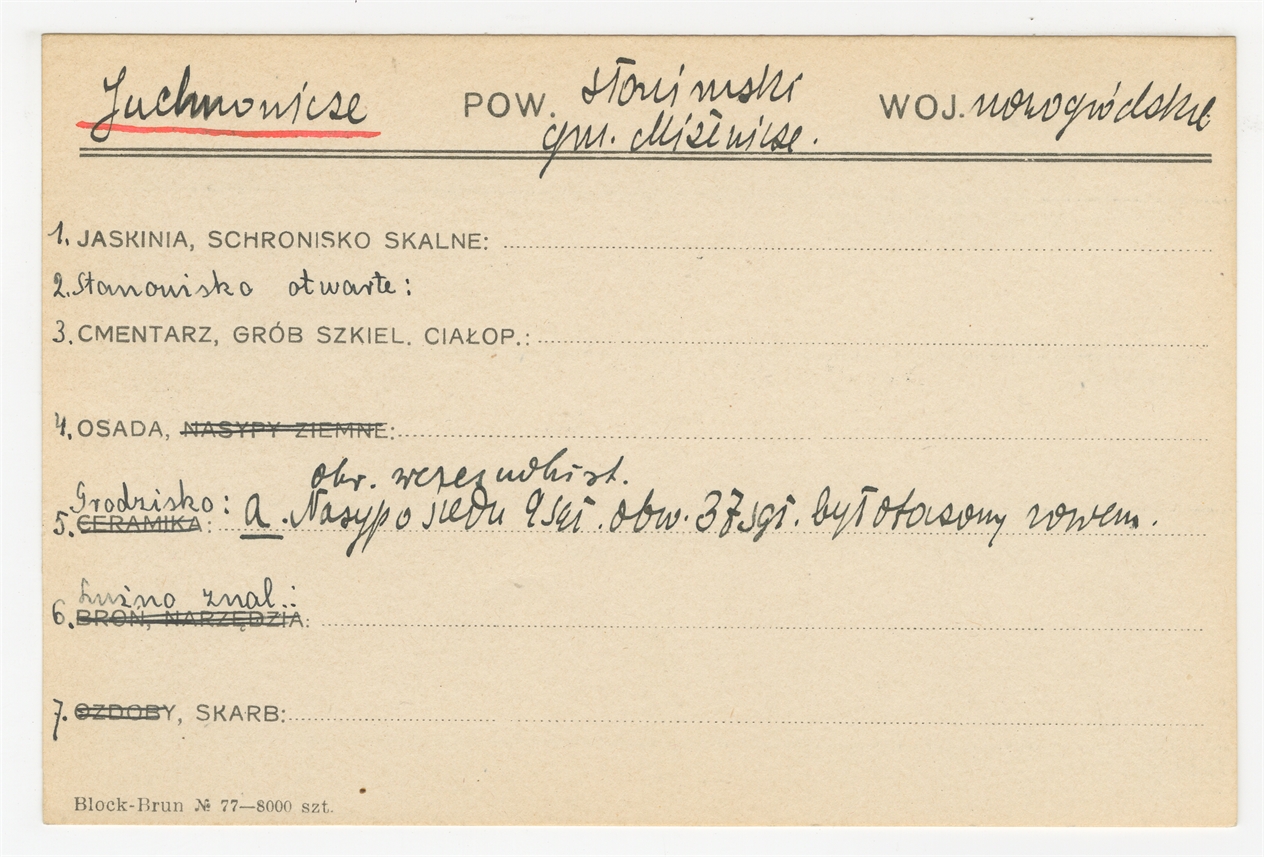 Juchnowicze POW. słonimski WOJ. nowogródzkie
gm. Miżewicze.
1. JASKINIA, SCHRONISKO SKALNE:
2. Stanowisko otwarte:
3. CMENTARZ, GRÓB SZKIEL. CIAŁOP.:
4. OSADA, NASYPY ZIEMNE:
okr. wczesnohist.
Grodzisko:
5. CERAMIKA: a. Nasyp o siedu 9 sąż. obw. 37 sąż. był otaczony rowem.
Luźno znal.:
6. BROŃ, NARZĘDZIA:
7. OZDOBY, SKARB:
Block-Brun № 77—8000 szt.